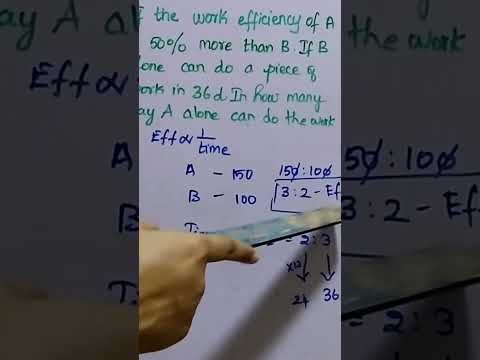 f the work efficiency of A
50% more than B. If B
lone can do a piece of
ork in 36d. In how many
ay A alone can do the work
Eff ∝ 1/time
A – 150 150 : 100
B – 100 3 : 2 – Ef
= 2 : 3
×12
24 36